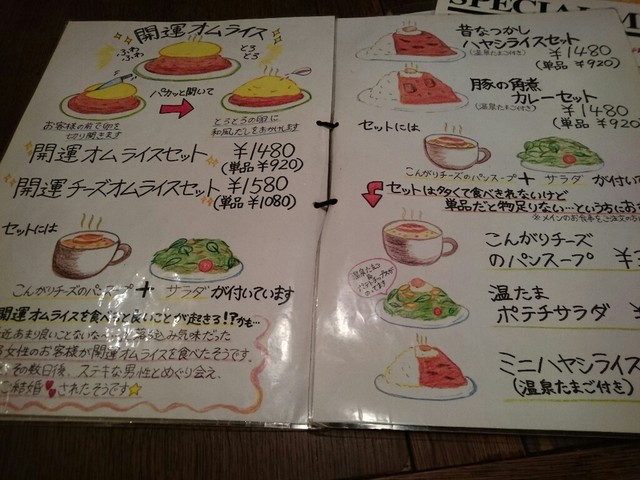 開運オムライス
ふわ
ふわ
とろ
とろ
パカッと開いて
お客様の前で卵を
切り開きます
とろとろの卵に
和風だしをおかけします
開運オムライスセット ¥1480
(単品 ¥920)
開運チーズオムライスセット ¥1580
(単品 ¥1080)
セットには
こんがりチーズのパンスープ + サラダ が付いています
開運オムライスを食べると良いことが起きる!?かも…
近あまり良いことないな
落ち込み気味だった
女性のお客様が開運オムライスを食べたそうです。
その数日後、ステキな男性とめぐり会え、
ご結婚されたそうです
SPECIAL M
昔なつかし
ハヤシライスセット
(温泉たまご付き) ¥1480
(単品 ¥920)
豚の角煮
カレーセット
(温泉たまご付き) ¥1480
(単品 ¥920
セットには
こんがりチーズのパンスープ + サラダ が付い
セットは多くて食べきれないけど
単品だと物足りない…という方にお
※メインのお食事をご注文の
こんがりチーズ
のパンスープ ¥
温泉たまご
&
ポテトチップスが
のってます
温たま
ポテチサラダ ¥
ミニハヤシライス
(温泉たまご付き)